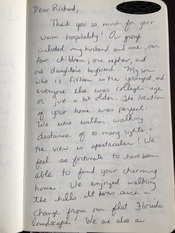 Dear Richard,
Thank you so much for your
warm hospitality! Our group
included my husband and me, our
four children, one nephew, and
one daughters boyfriend. My son
who is fifteen is the youngest and
everyone else was college-age
or just a bit older. The location
of your home was perfect!
We were within walking
distance of so many sights &
the view is spectacular! We
feel so fortunate to have been
able to find your charming
home! We enjoyed walking
the hills. It was such a
change from our flat Florida
landscape! We are also an